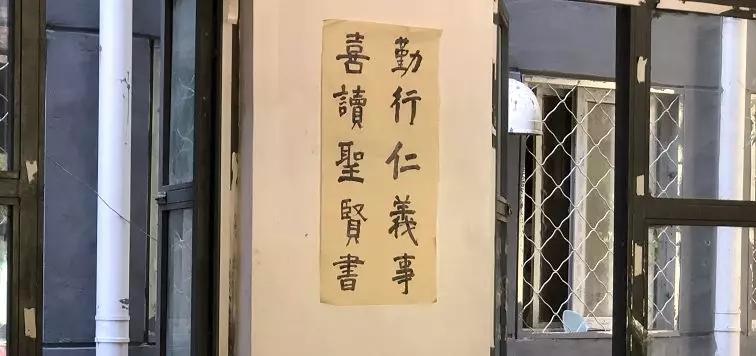 勤行仁義事
喜讀聖賢書